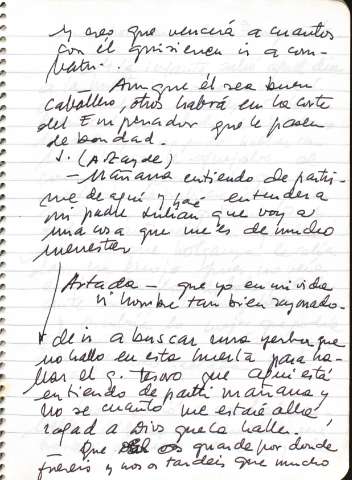 y creo que vencerá a cuantos
con él quisieren ir a com-
batir.
— Aunque él sea buen
caballero, otros habrá en la corte
del Emperador que le pasen
de bondad.
J. (A Stayde)
— Mañana entiendo de partir-
me de aquí y haré entender a
mi padre Lulian que voy a
una cosa que me es de mucho
menester
Artada — que yo en mi vida
vi hombre tan bien razonado.
+ de ir a buscar una yerba que
no hallo en esta huerta para ha-
llar el g. tesoro que aquí está
entiendo de partir mañana y
no se cuanto me estaré allá,
rogad a Dios que la halle.
— Que os guarde por donde
fuereis y no os tardeis que mucho